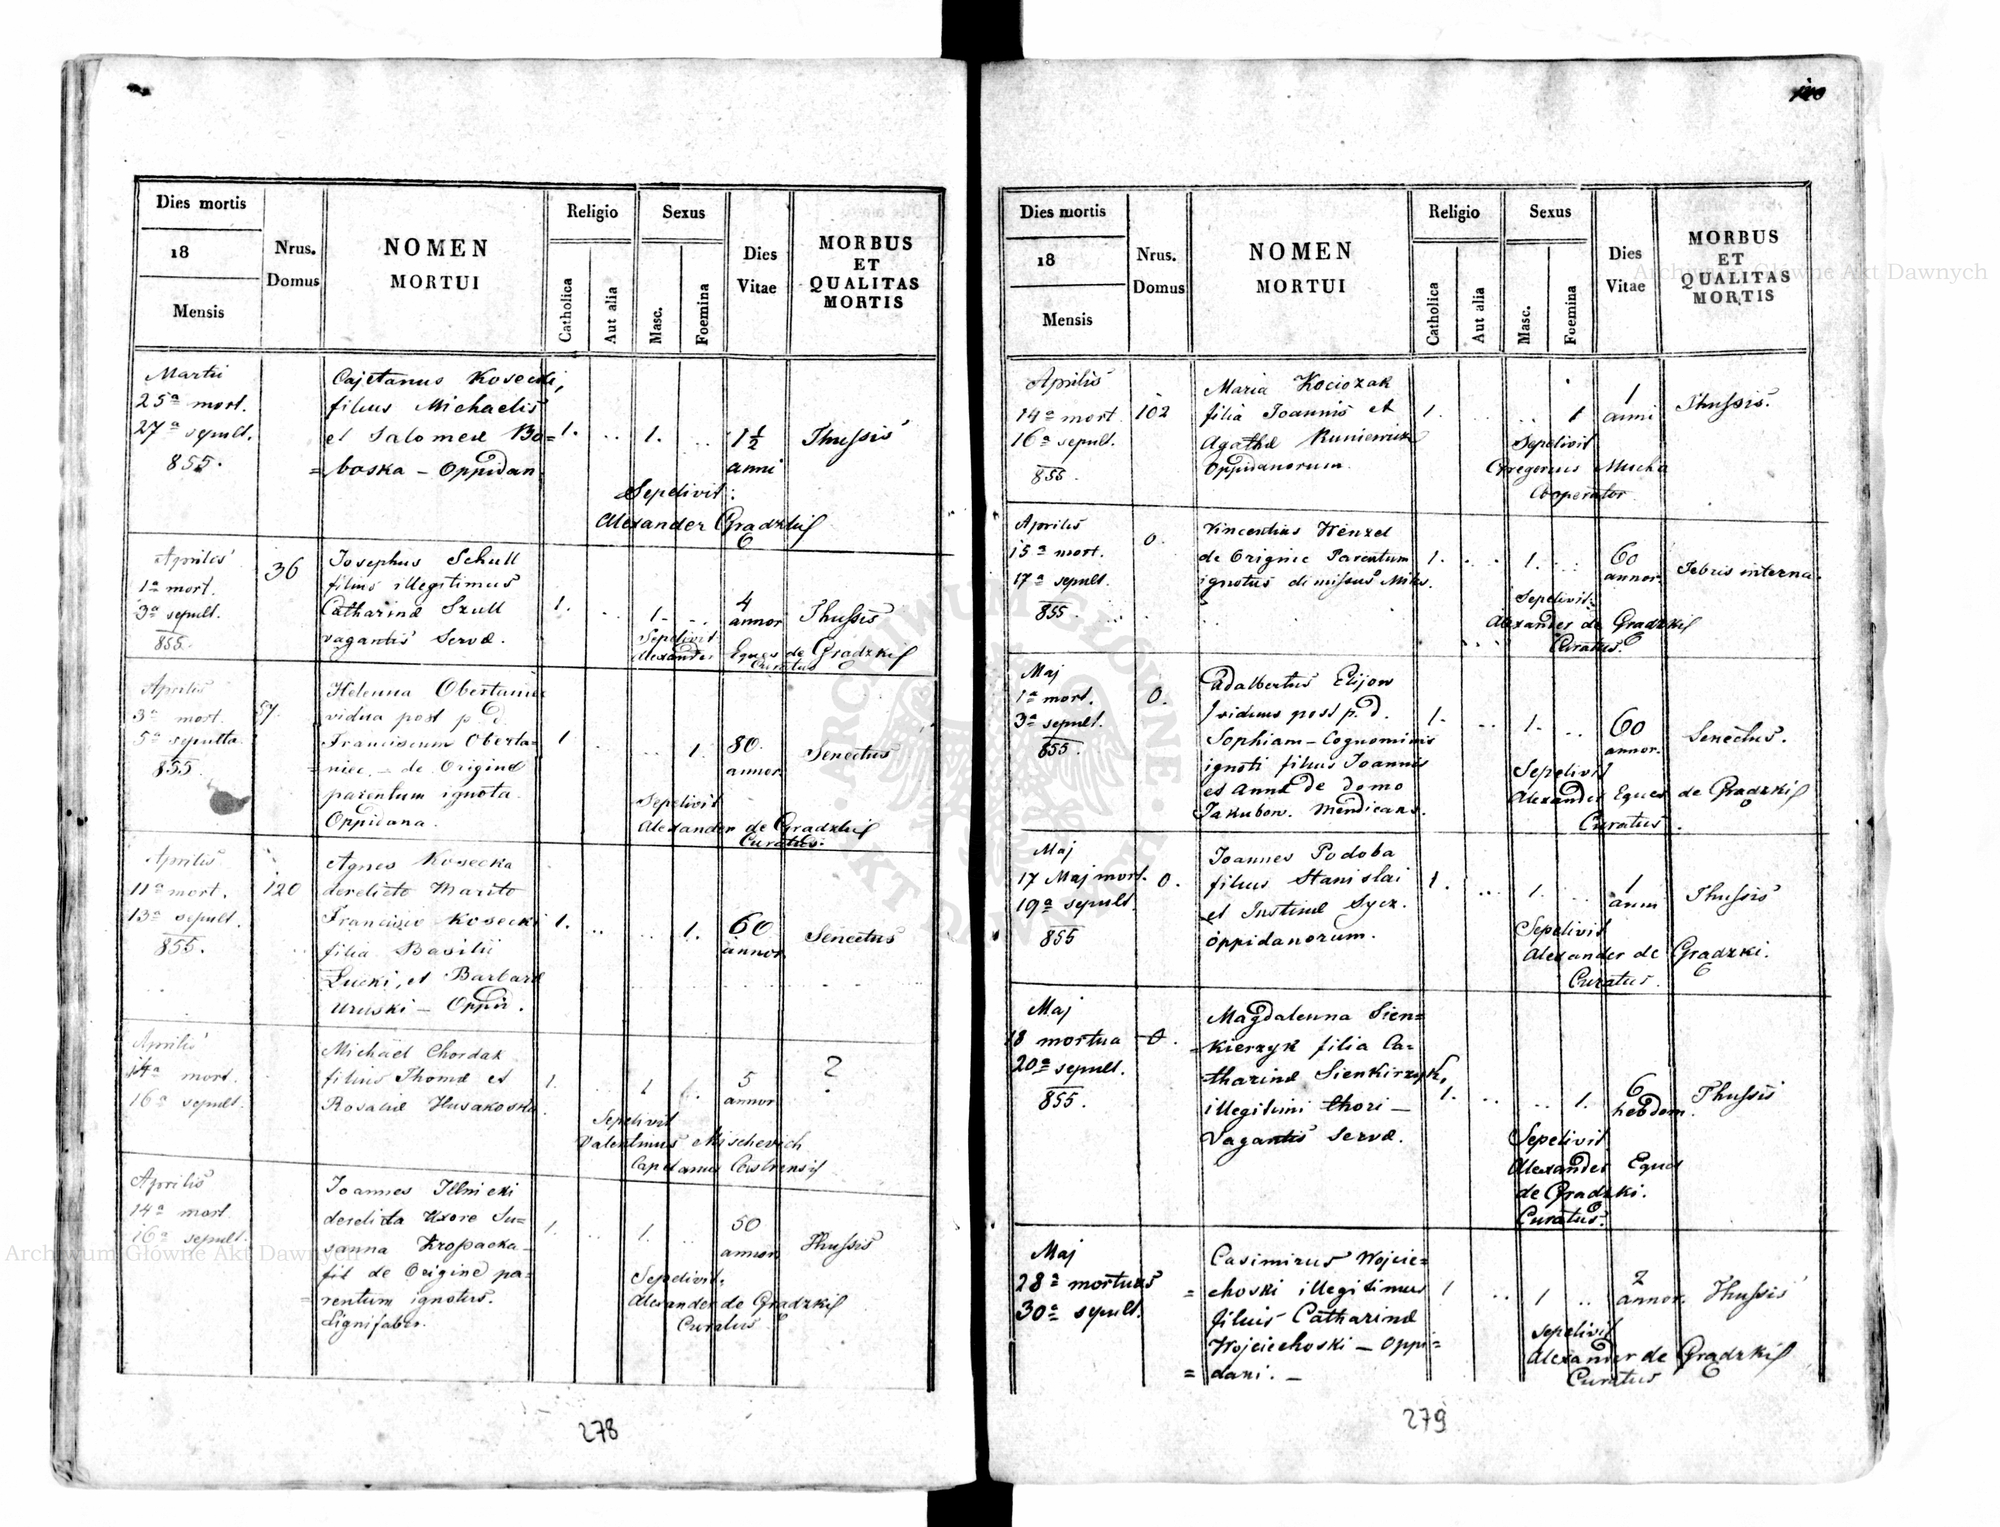 Dies mortis
18
Mensis
Nrus.
Domus
NOMEN
MORTUI
Religio
Catholica
Aut alia
Sexus
Masc.
Foemina
Dies
Vitae
MORBUS
ET
QUALITAS
MORTIS
Martii
25a mort.
27a sepult.
855.
Cajetanus Kosecki,
filius Michaelis
et Salomeæ Bo=
=boska – Oppidan
1. .. 1. ..
1½
anni
Thussis
Sepelivit:
Alexander Gradzki
Aprilis
1a mort.
3a sepult.
855.
36
Josephus Schull
filius illegitimus
Catharinæ Szull
vagantis Servæ.
1. .. 1. ..
4
annor
Thussis
Sepelivit
Alexander Eques de Gradzki
Curatus
Aprilis
3a mort.
5a sepulta
855.
57.
Helenna Obertaniec
vidua post p. d.
Franciscum Oberta=
=niec. – de Origine
parentum ignota.
Oppidana.
1 .. .. 1.
80.
annor
Senectus
Sepelivit
Alexander de Gradzki
Curatus.
Aprilis
11a mort.
13a sepult.
855.
120
Agnes Kosecka
derelicto Marito
Francisco Kosecki
filia Basilii
Łucki, et Barbaræ
Urelski – Oppid.
1. .. .. 1.
60
annor
Senectus
Aprilis
14a mort.
16a sepult.
Michael Chordak
filius Thomæ et
Rosaliæ Husakoska
1. .. 1
5
annor
?
Sepelivit
Valentinus Mischevich
Capelanus Castrensis
Aprilis
14a mort.
16a sepult.
Joannes Illnicki
derelicta Uxore Su=
sanna Kropacka
fil de Origine pa=
=rentum ignotus.
Lignifaber.
1. .. 1. ..
50
annor
Thussis
Sepelivit.
Alexander de Gradzki
Curatus
278
Dies mortis
18
Mensis
Nrus.
Domus
NOMEN
MORTUI
Religio
Catholica
Aut alia
Sexus
Masc.
Foemina
Dies
Vitae
MORBUS
ET
QUALITAS
MORTIS
Aprilis
14a mort.
16a sepult.
855.
102
Maria Kociozak
filia Joannis et
Agathæ Runiewicz
Oppidanorum.
1. .. .. 1
1
anni
Thussis.
Sepelivit
Gregorius Mucha
Cooperator
Aprilis
15a mort.
17a sepult.
855.
0.
Vincentius Wenzel
de Origine Parentum
ignotus dimissus Miles.
1. .. 1. ..
60
annor.
Febris interna.
Sepelivit:
Alexander de Gradzki
Curatus.
Maj
1a mort.
3a sepult.
855.
0.
Adalbertus Elijow
viduus post p. d.
Sophiam – Cognominis
ignoti filius Joannis
et Annæ de domo
Jakubow. Mendicans.
1. .. 1. ..
60
annor.
Senectus.
Sepelivit
Alexander Eques de Gradzki
Curatus.
Maj
17 Maj mort.
19a sepult.
855
0.
Joannes Podoba
filius Stanislai
et Justinæ Sycz.
oppidanorum.
1. ... 1. ..
1
anni
Thussis
Sepelivit
Alexander de Gradzki.
Curatus.
Maj
18 mortua
20a sepult.
855.
0.
Magdalenna Sien=
=kierzyk filia Ca=
tharinæ Sienkirzyk,
illegitimi thori –
Vagantis Servæ.
1. .. .. 1.
6
hebdom.
Thussis
Sepelivit
Alexander Eques
de Gradzki.
Curatus.
Maj
28a mortuus
30a sepult.
Casimirus Wojcie=
=choski illegitimus
filius Catharinæ
Wojciechoski – Oppi=
=dani. –
1 .. 1 ..
2
annor.
Thussis
Sepelivit
Alexander de Gradzki
Curatus
279
Archiwum Główne Akt Dawnych
Archiwum Główne Akt Dawnych
ARCHIWUM GŁÓWNE AKT DAWNYCH